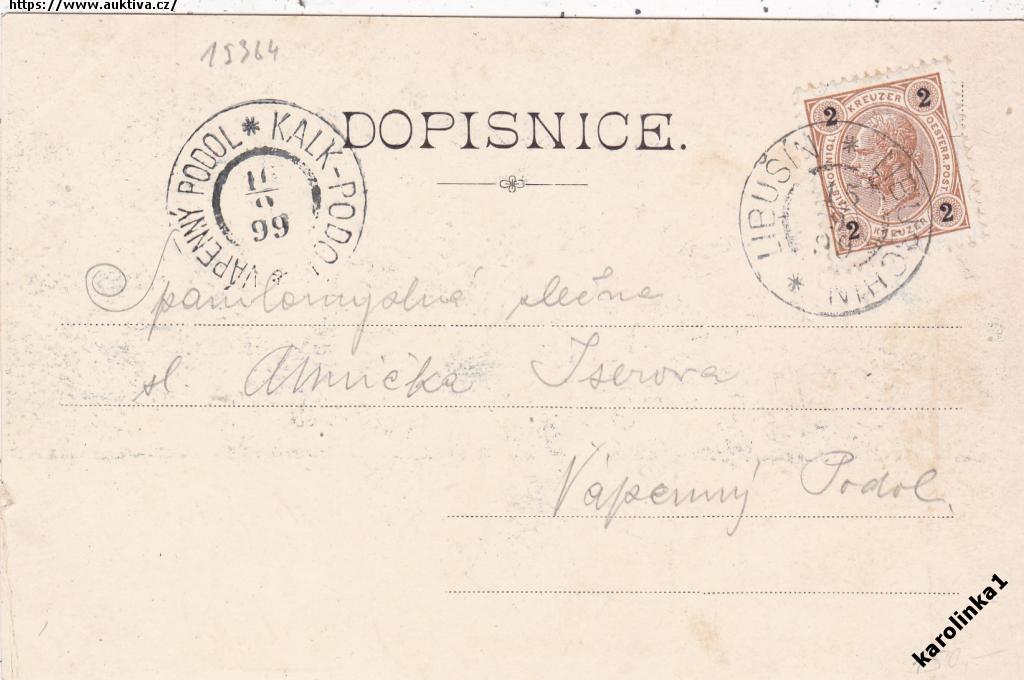 https://www.auktiva.cz/
15364
DOPISNICE.
VÁPENNÝ PODOL * KALK-PODOL
99
2 KREUZER 2
OESTERR. POST.
2 KREUZER 2
* LIBUŠÍN *
slečna
sl. Annička Iserova
Vápenný Podol
karolinka1